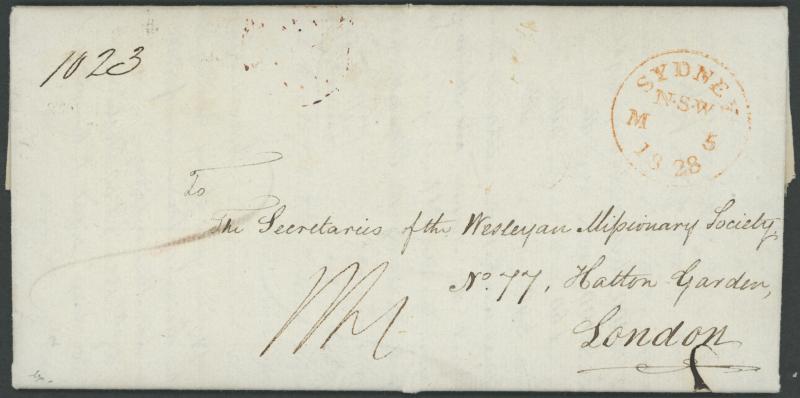 1023
SYDNEY
N.S.W
M 5
1828
To
The Secretaries of the Wesleyan Missionary Society,
No. 77, Hatton Garden,
London